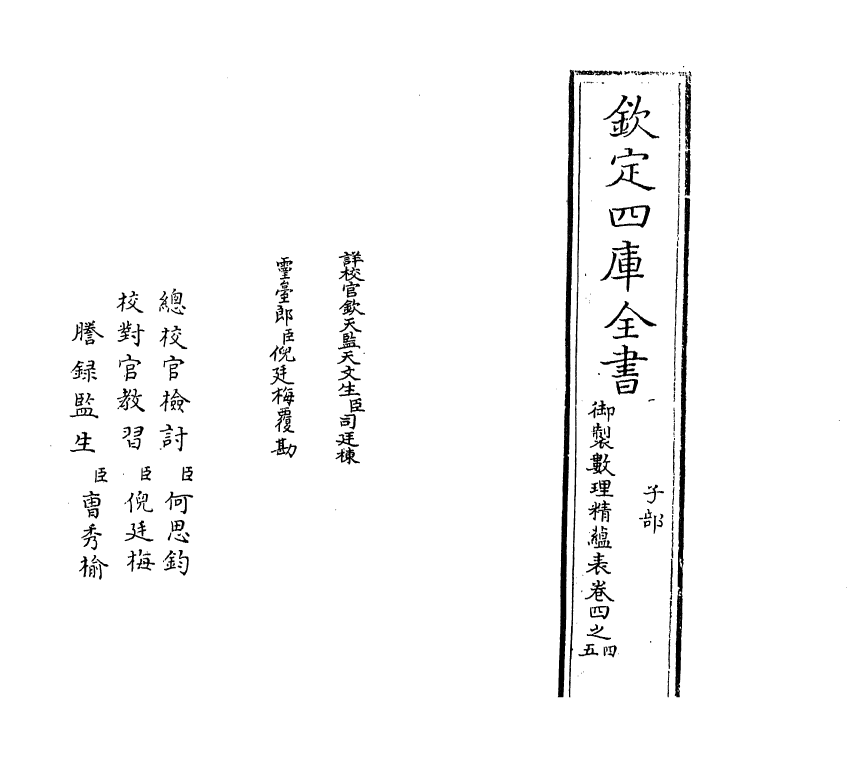 欽定四庫全書
子部
御製數理精藴表卷四之四五
詳校官欽天監天文生臣司廷棟
靈臺郎臣倪廷梅覆勘
總校官檢討臣何思鈞
校對官教習臣倪廷梅
謄録監生臣曹秀榆